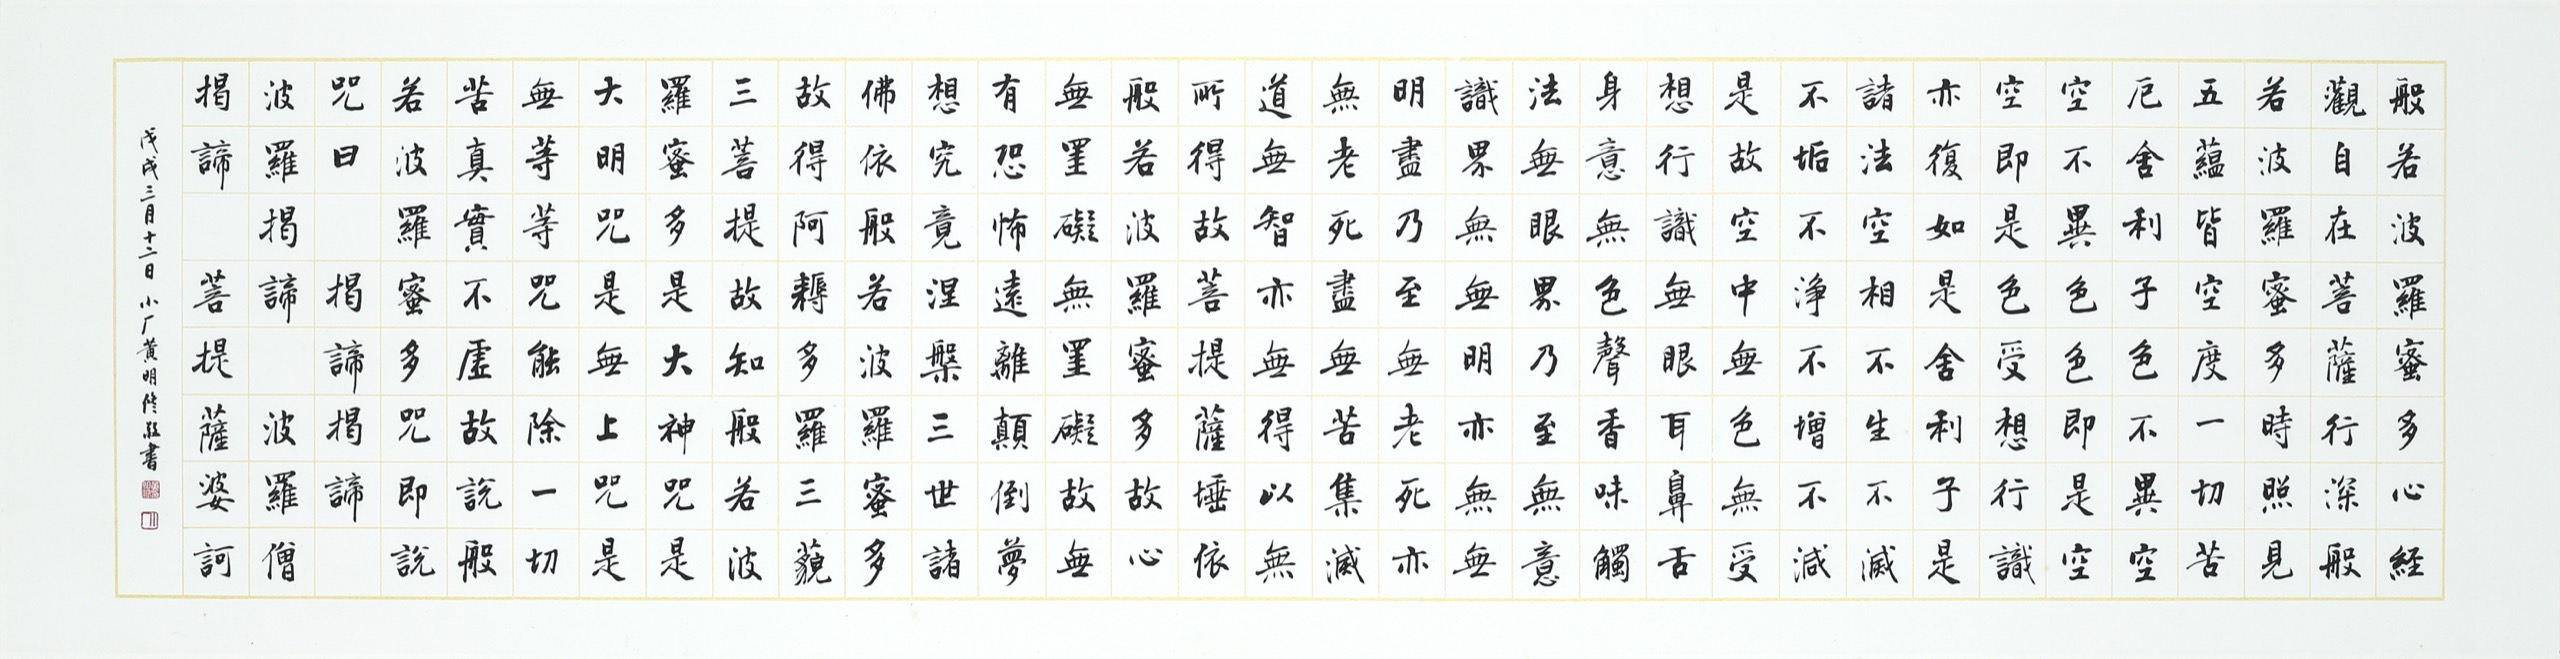 般若波羅蜜多心経
觀自在菩薩行深般
若波羅蜜多時照見
五蘊皆空度一切苦
厄舍利子色不異空
空不異色色即是空
空即是色受想行識
亦復如是舍利子是
諸法空相不生不滅
不垢不淨不增不減
是故空中無色無受
想行識無眼耳鼻舌
身意無色聲香味觸
法無眼界乃至無意
識界無無明亦無無
明盡乃至無老死亦
無老死盡無苦集滅
道無智亦無得以無
所得故菩提薩埵依
般若波羅蜜多故心
無罣礙無罣礙故無
有恐怖遠離顛倒夢
想究竟涅槃三世諸
佛依般若波羅蜜多
故得阿耨多羅三藐
三菩提故知般若波
羅蜜多是大神咒是
大明咒是無上咒是
無等等咒能除一切
苦真實不虛故說般
若波羅蜜多咒即說
咒曰 揭諦揭諦
波羅揭諦 波羅僧
揭諦 菩提薩婆訶
戊戌三月十二日 小厂黄明修敬書